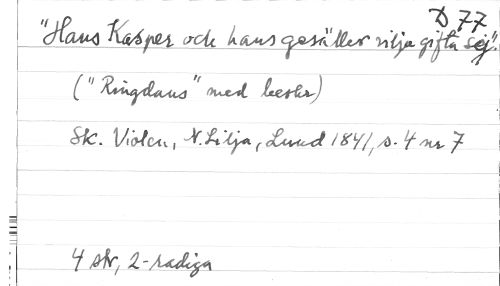 D 77
"Hans Kasper och hans gesäller vilja gifta sej".
("Ringdans" med beskr)
Sk. Violen, N. Lilja, Lund 1841, s. 4 nr 7
4 str, 2-radiga